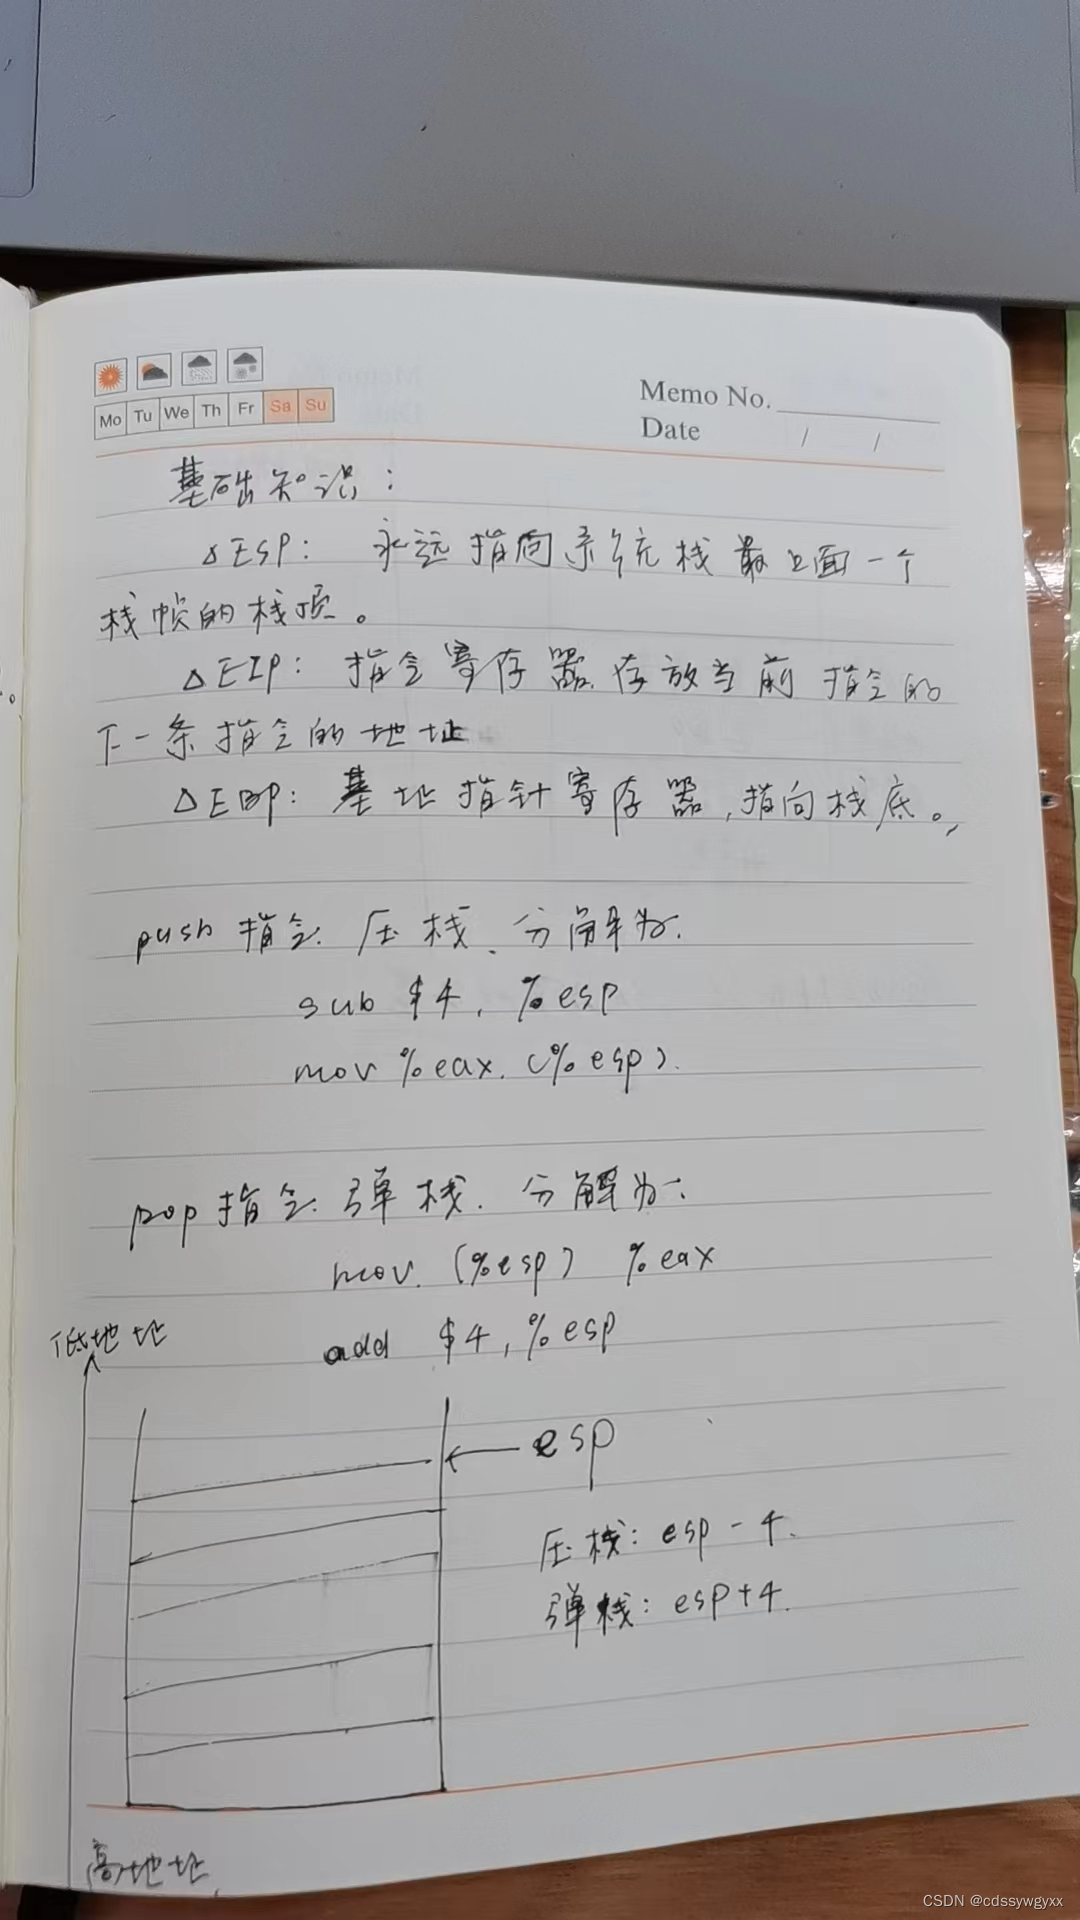 Mo Tu We Th Fr Sa Su
Memo No.
Date / /
基础知识：
△ESP： 永远指向系统栈最上面一个
栈帧的栈顶。
△EIP：指令寄存器,存放当前指令的
下一条指令的地址
△EBP：基址指针寄存器,指向栈底。
push 指令. 压栈. 分解为.
sub $4, %esp
mov %eax. (%esp).
pop 指令. 弹栈. 分解为:
mov. (%esp) %eax
add $4, %esp
低地址
esp
压栈: esp-4.
弹栈: esp+4.
高地址
CSDN @cdssywgyxx